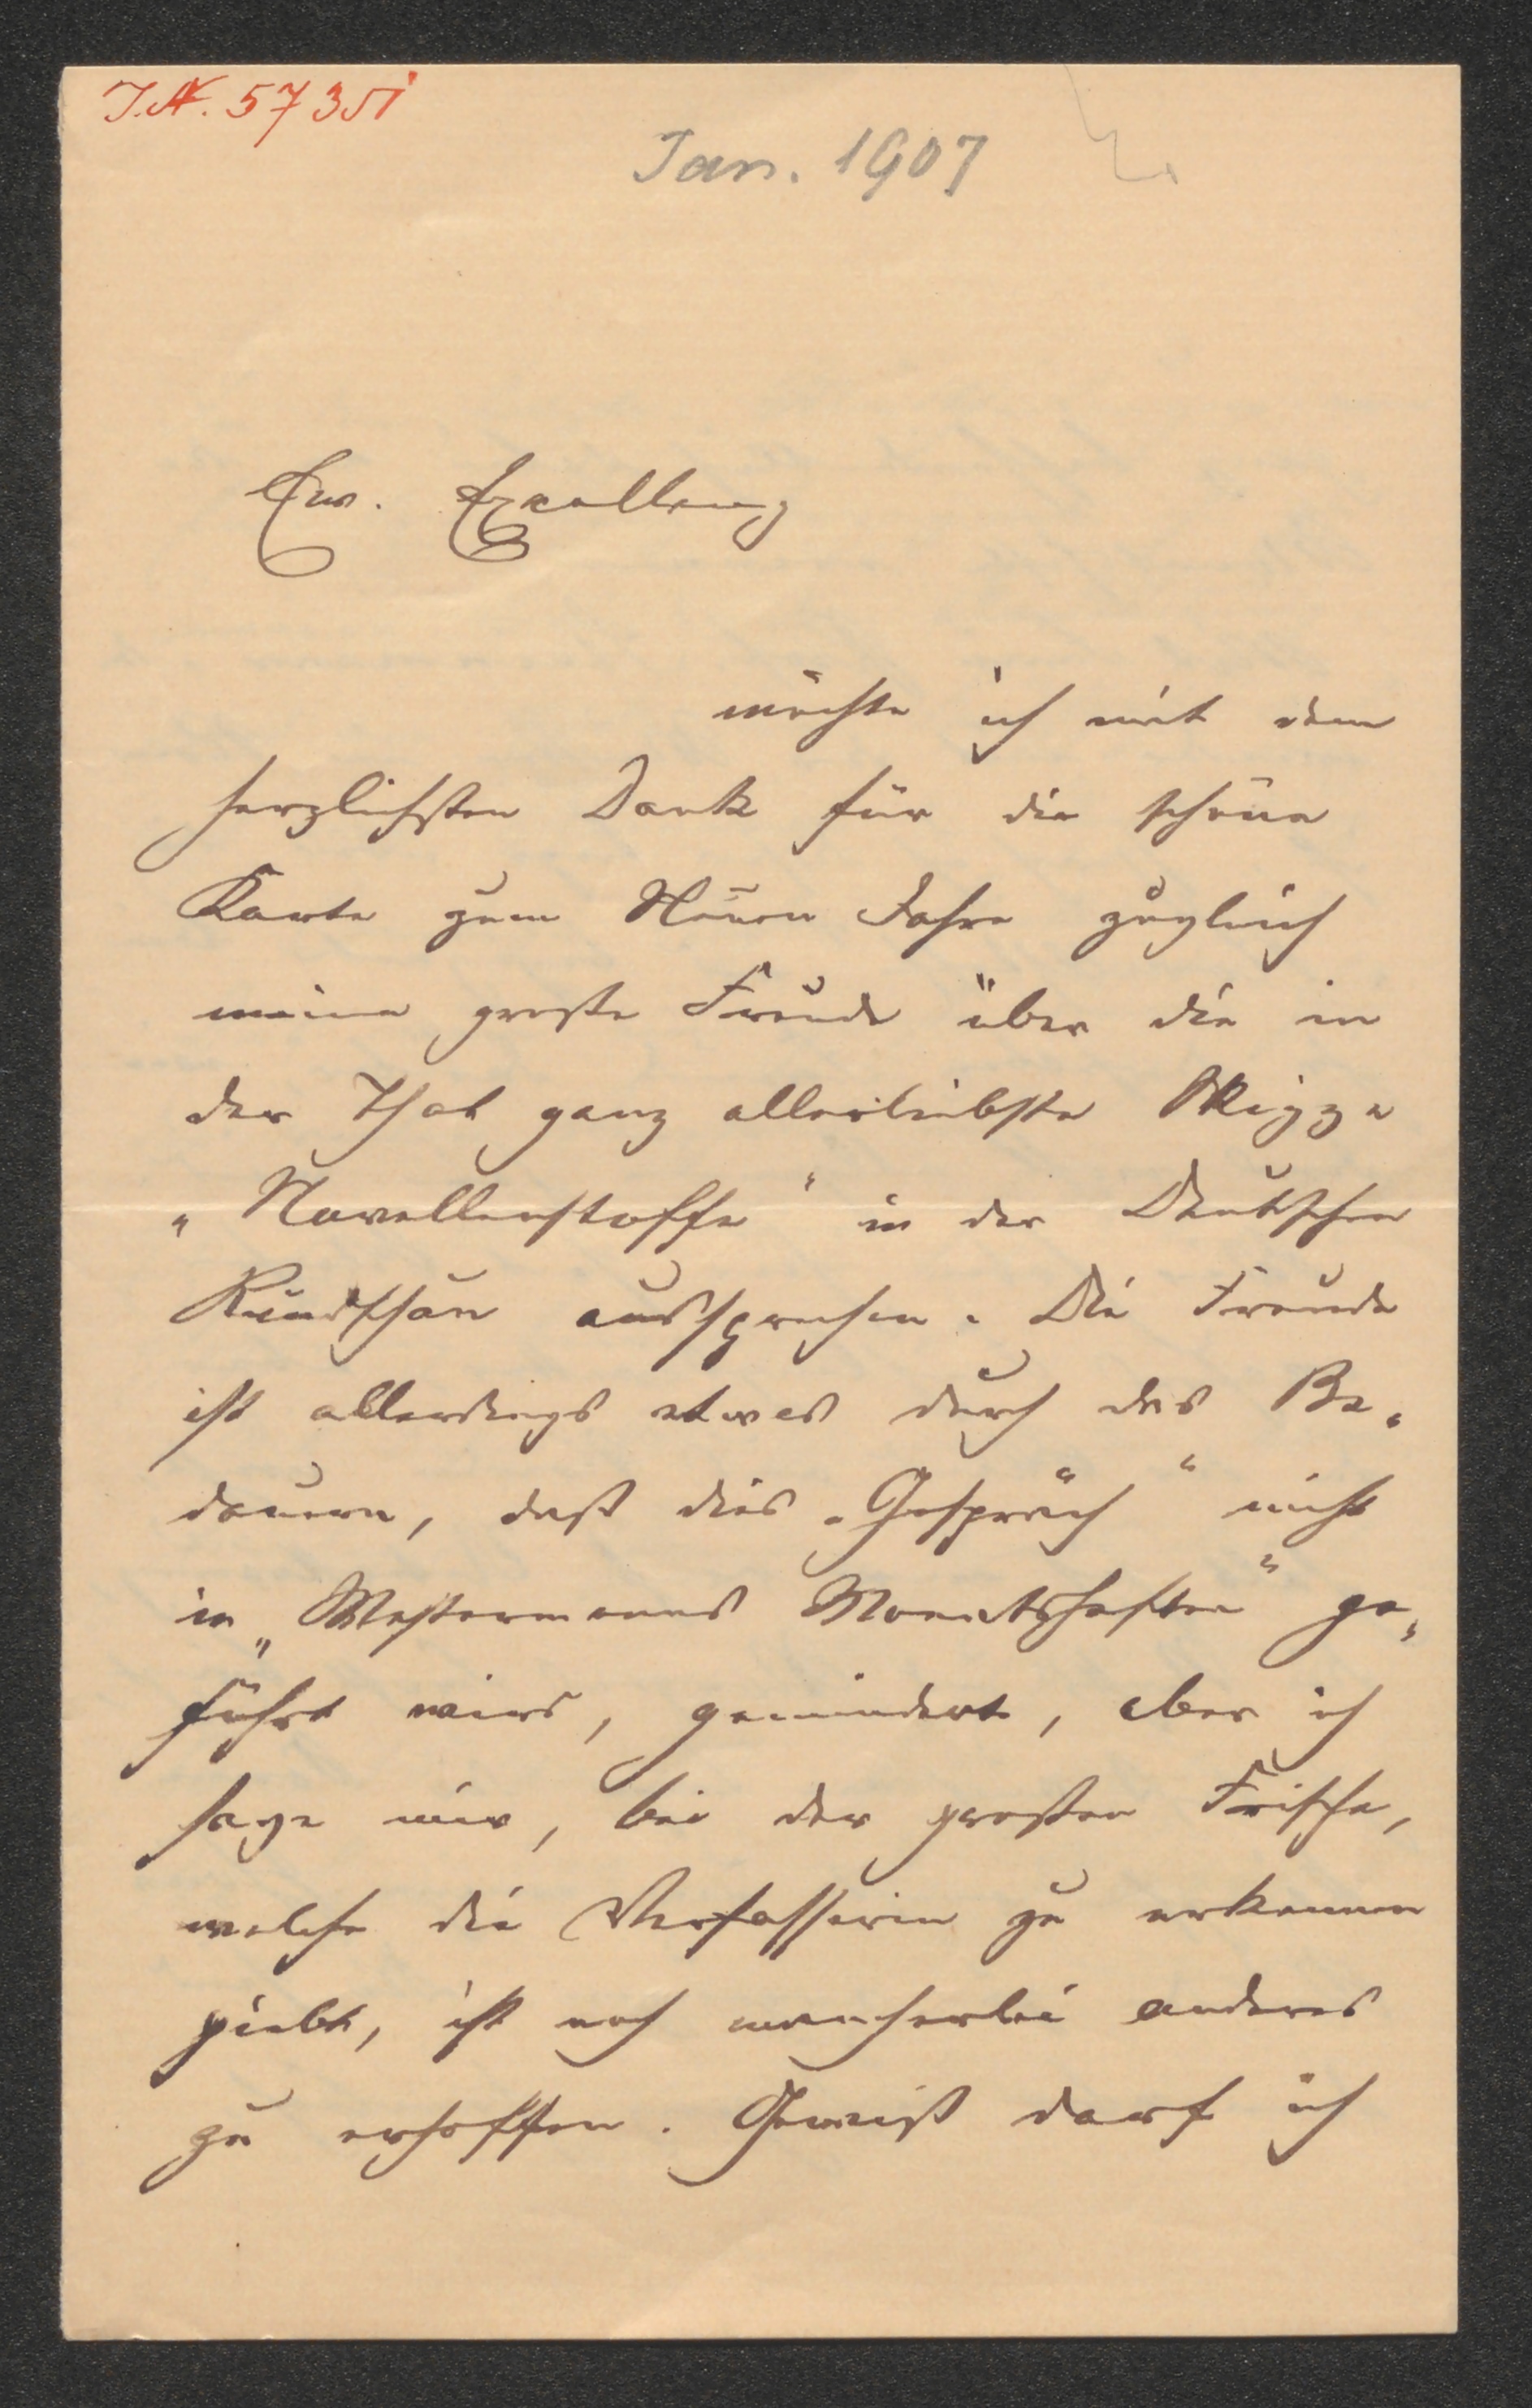 J.N. 57351
Jan. 1907
Ew. Excellenz
möchte ich mit dem
herzlichsten Dank für die schöne
Karte zum Neuen Jahre zugleich
meine große Freude über die in
der That ganz allerliebste Skizze
„Novellenstoffe" in der Deutschen
Rundschau aussprechen. Die Freude
ist allerdings etwas durch das Be-
dauern, daß dies „Gespräch" nicht
in „Westermanns Monatsheften" ge-
führt wird, gemindert, aber ich
sage mir, bei der großen Frische,
welche die Verfasserin zu erkennen
giebt, ist noch mancherlei anderes
zu erhoffen. Gewiß darf ich